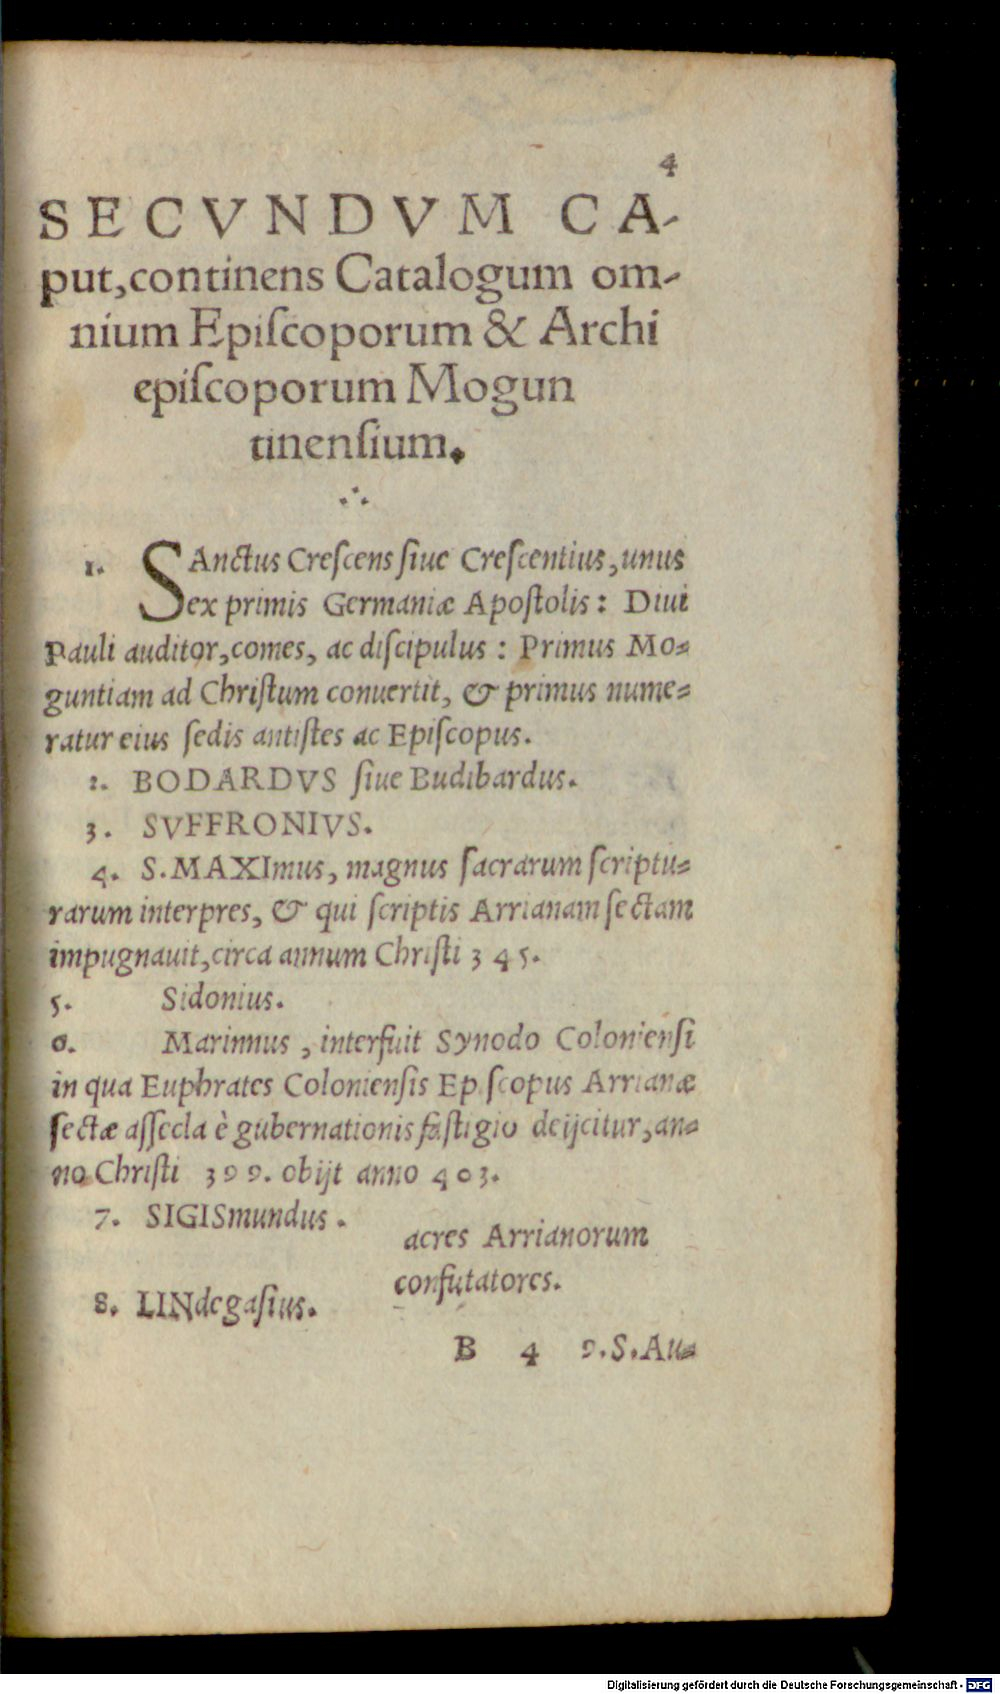 4
SECVNDVM CA-
put, continens Catalogum om-
nium Epiſcoporum & Archi
epiſcoporum Mogun
tinenſium.
∴
1. SAnctus Creſcens ſiue Creſcentius, unus
ex primis Germaniæ Apoſtolis: Diui
Pauli auditor, comes, ac diſcipulus: Primus Mo-
guntiam ad Chriſtum conuertit, & primus nume-
ratur eius ſedis antiſtes ac Epiſcopus.
2. BODARDVS ſiue Budibardus.
3. SVFFRONIVS.
4. S. MAXImus, magnus ſacrarum ſcriptu-
rarum interpres, & qui ſcriptis Arrianam ſectam
impugnauit, circa annum Chriſti 345.
5. Sidonius.
6. Marinnus, interfuit Synodo Colonienſi
in qua Euphrates Colonienſis Epiſcopus Arrianæ
ſectæ aſſecla è gubernationis faſtigio deijcitur, an-
no Chriſti 399. obijt anno 403.
7. SIGISmundus.
acres Arrianorum
confutatores.
8. LINdegaſius.
B 4 9. S. Au-
Digitalisierung gefördert durch die Deutsche Forschungsgemeinschaft - DFG